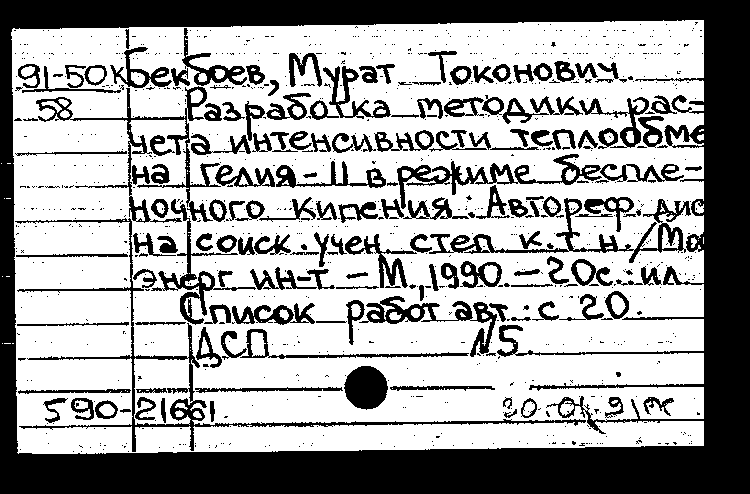 91-50к Бекбоев, Мурат Токонович.
58 Разработка методики рас-
чета интенсивности теплообме
на гелия-II в режиме беспле-
ночного кипения: Автореф. дис
на соиск. учен. степ. к.т.н./Мо
энерг ин-т. - М., 1990. - 20с.: ил.
Список работ авт.: с. 20.
ДСП. N5.
590-21661